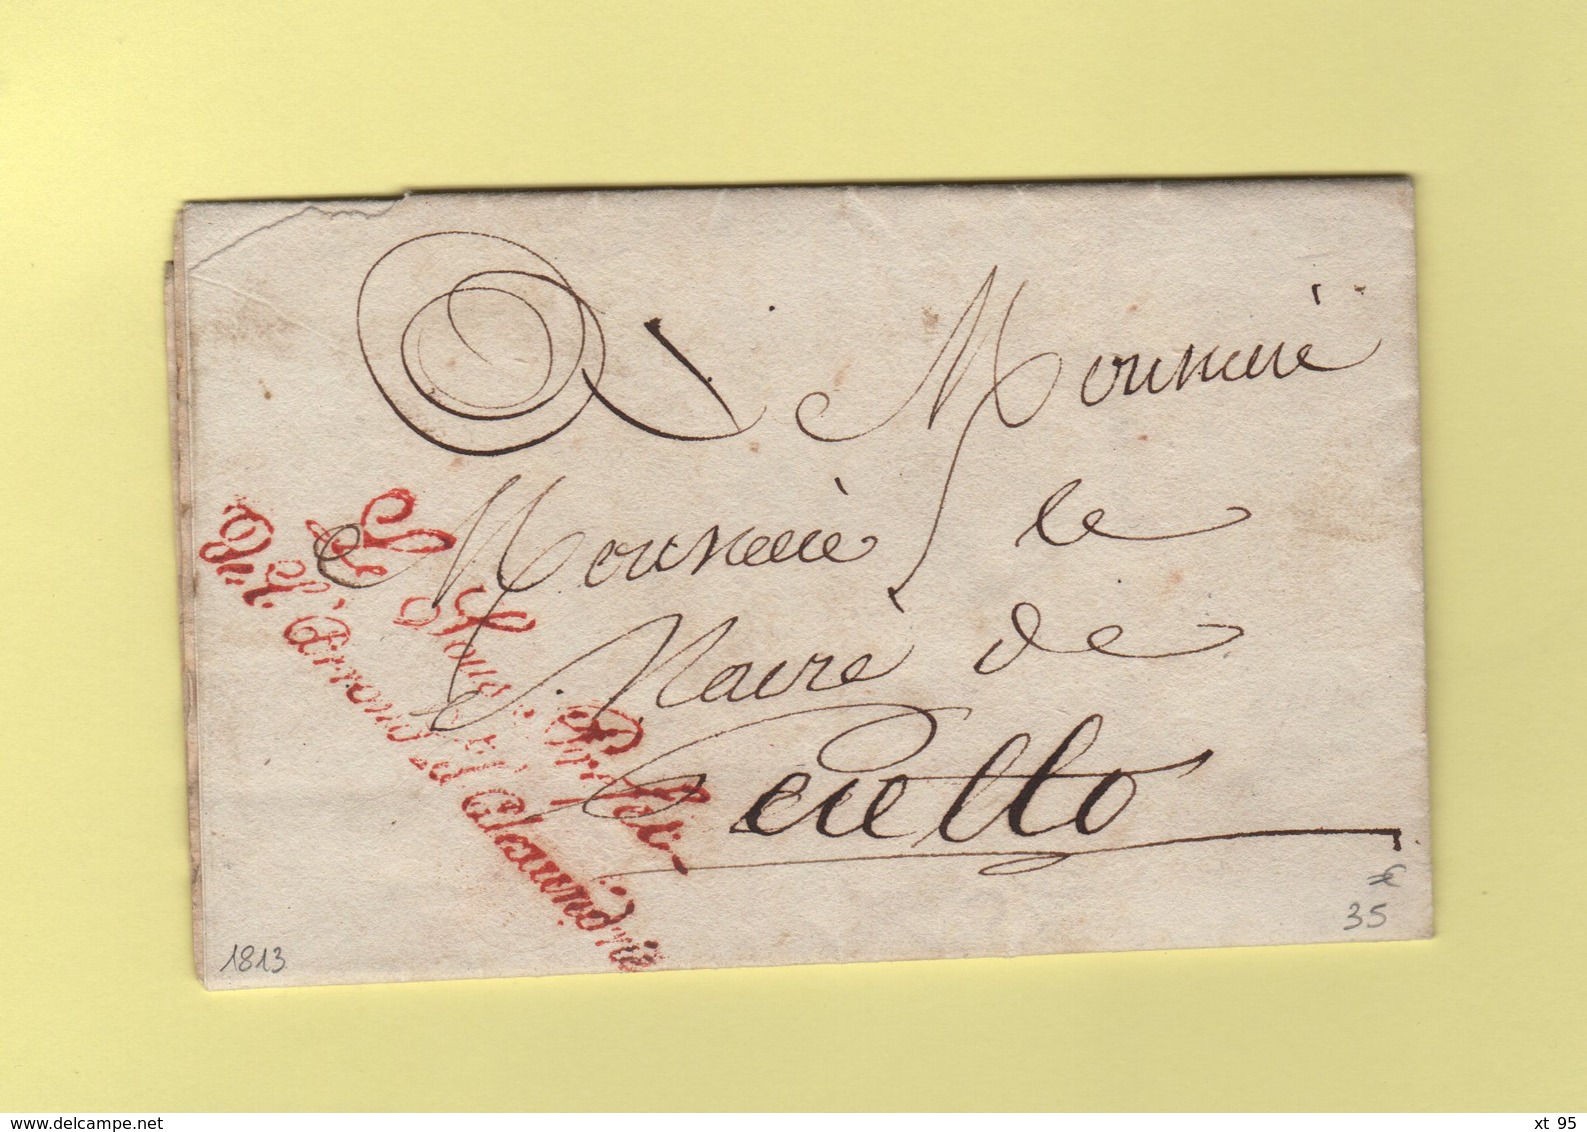 A Monsieur
Monsieur le
Maire de
Le Sous-Préfet
De L'Arrond.t d'Alexandrie
1813
€
35
delcampe.net
xt 95